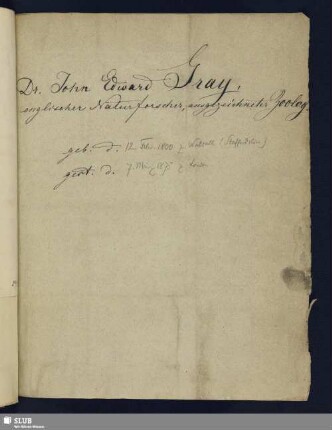 Dr. John Edward Gray,
englischer Naturforscher, ausgezeichneter Zoolog
geb: d. 12 Febr. 1800 z Walsall (Staffordsh.)
gest: d. 7. März 1875 z London
SLUB
Wir führen Wissen.